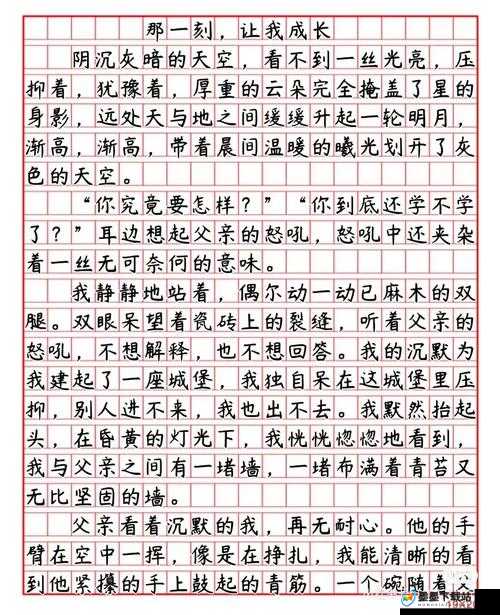 那一刻，让我成长
阴沉灰暗的天空，看不到一丝光亮，压
抑着，犹豫着，厚重的云朵完全掩盖了星的
身影，远处天与地之间缓缓升起一轮明月，
渐高，渐高，带着晨间温暖的曦光划开了灰
色的天空。
“你究竟要怎样？”“你到底还学不学
了？”耳边想起父亲的怒吼，怒吼中还夹杂
着一丝无可奈何的意味。
我静静地站着，偶尔动一动已麻木的双
腿。双眼呆望着瓷砖上的裂缝，听着父亲的
怒吼，不想解释，也不想回答。我的沉默为
我建起了一座城堡，我独自呆在这城堡里压
抑，别人进不来，我也出不去。我默然抬起
头，在昏黄的灯光下，我恍恍惚惚地看到，
我与父亲之间有一堵墙，一堵布满着青苔又
无比坚固的墙。
父亲看着沉默的我，再无耐心。他的手
臂在空中一挥，像是在挣扎，我能清晰的看
到他紧攥的手上鼓起的青筋。一个碗随着父
墨墨下载站